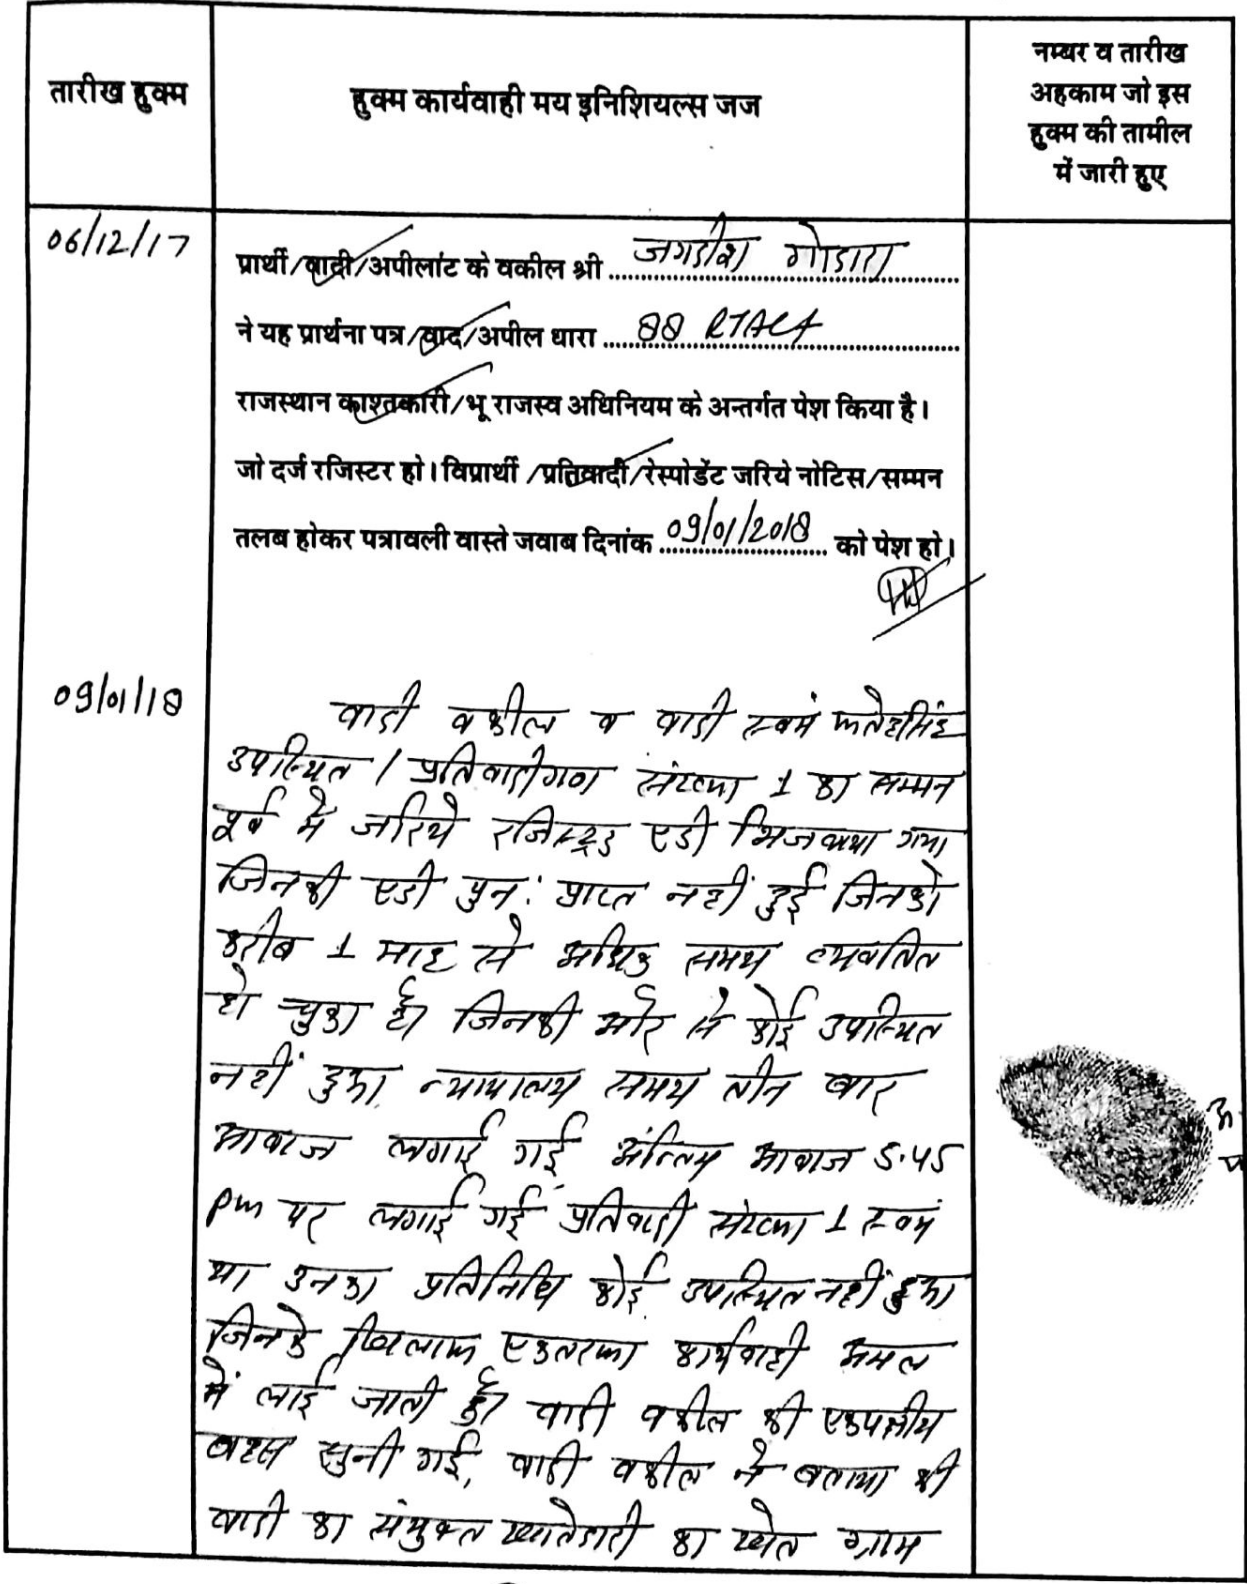 तारीख हुक्म
हुक्म कार्यवाही मय इनिशियल्स जज
नम्बर व तारीख
अहकाम जो इस
हुक्म की तामील
में जारी हुए
06/12/17
प्रार्थी/वादी/अपीलांट के वकील श्री जगदीश गोदारा
ने यह प्रार्थना पत्र/वाद/अपील धारा 88 RTAct
राजस्थान काश्तकारी/भू राजस्व अधिनियम के अन्तर्गत पेश किया है।
जो दर्ज रजिस्टर हो। विप्रार्थी/प्रतिवादी/रेस्पोडेंट जरिये नोटिस/सम्मन
तलब होकर पत्रावली वास्ते जवाब दिनांक 09/01/2018 को पेश हो।
09/01/18
वादी वकील व वादी स्वमं फतेहसिंह
उपस्थित। प्रतिवादीगण संख्या 1 का सम्मन
पूर्व मे जरिये रजिस्ट्रड एडी भिजवाया गया
जिनकी एडी पुन: प्राप्त नहीं हुई जिनको
करीब 1 माह से अधिक समय व्यवतित
हो चुका है। जिनकी ओर से कोई उपस्थित
नहीं हुआ, न्यायालय समय तीन बार
आवाज लगाई गई, अंन्तिम आवाज 5.45
pm पर लगाई गई प्रतिवादी संख्या 1 स्वमं
या उनका प्रतिनिधि कोई उपस्थित नहीं हुआ
जिनके खिलाफ एकतरफा कार्यवाही अमल
में लाई जाती है। वादी वकील की एकपक्षीय
बहस सुनी गई, वादी वकील ने बताया की
वादी का संयुक्त खातेदारी का खेत ग्राम